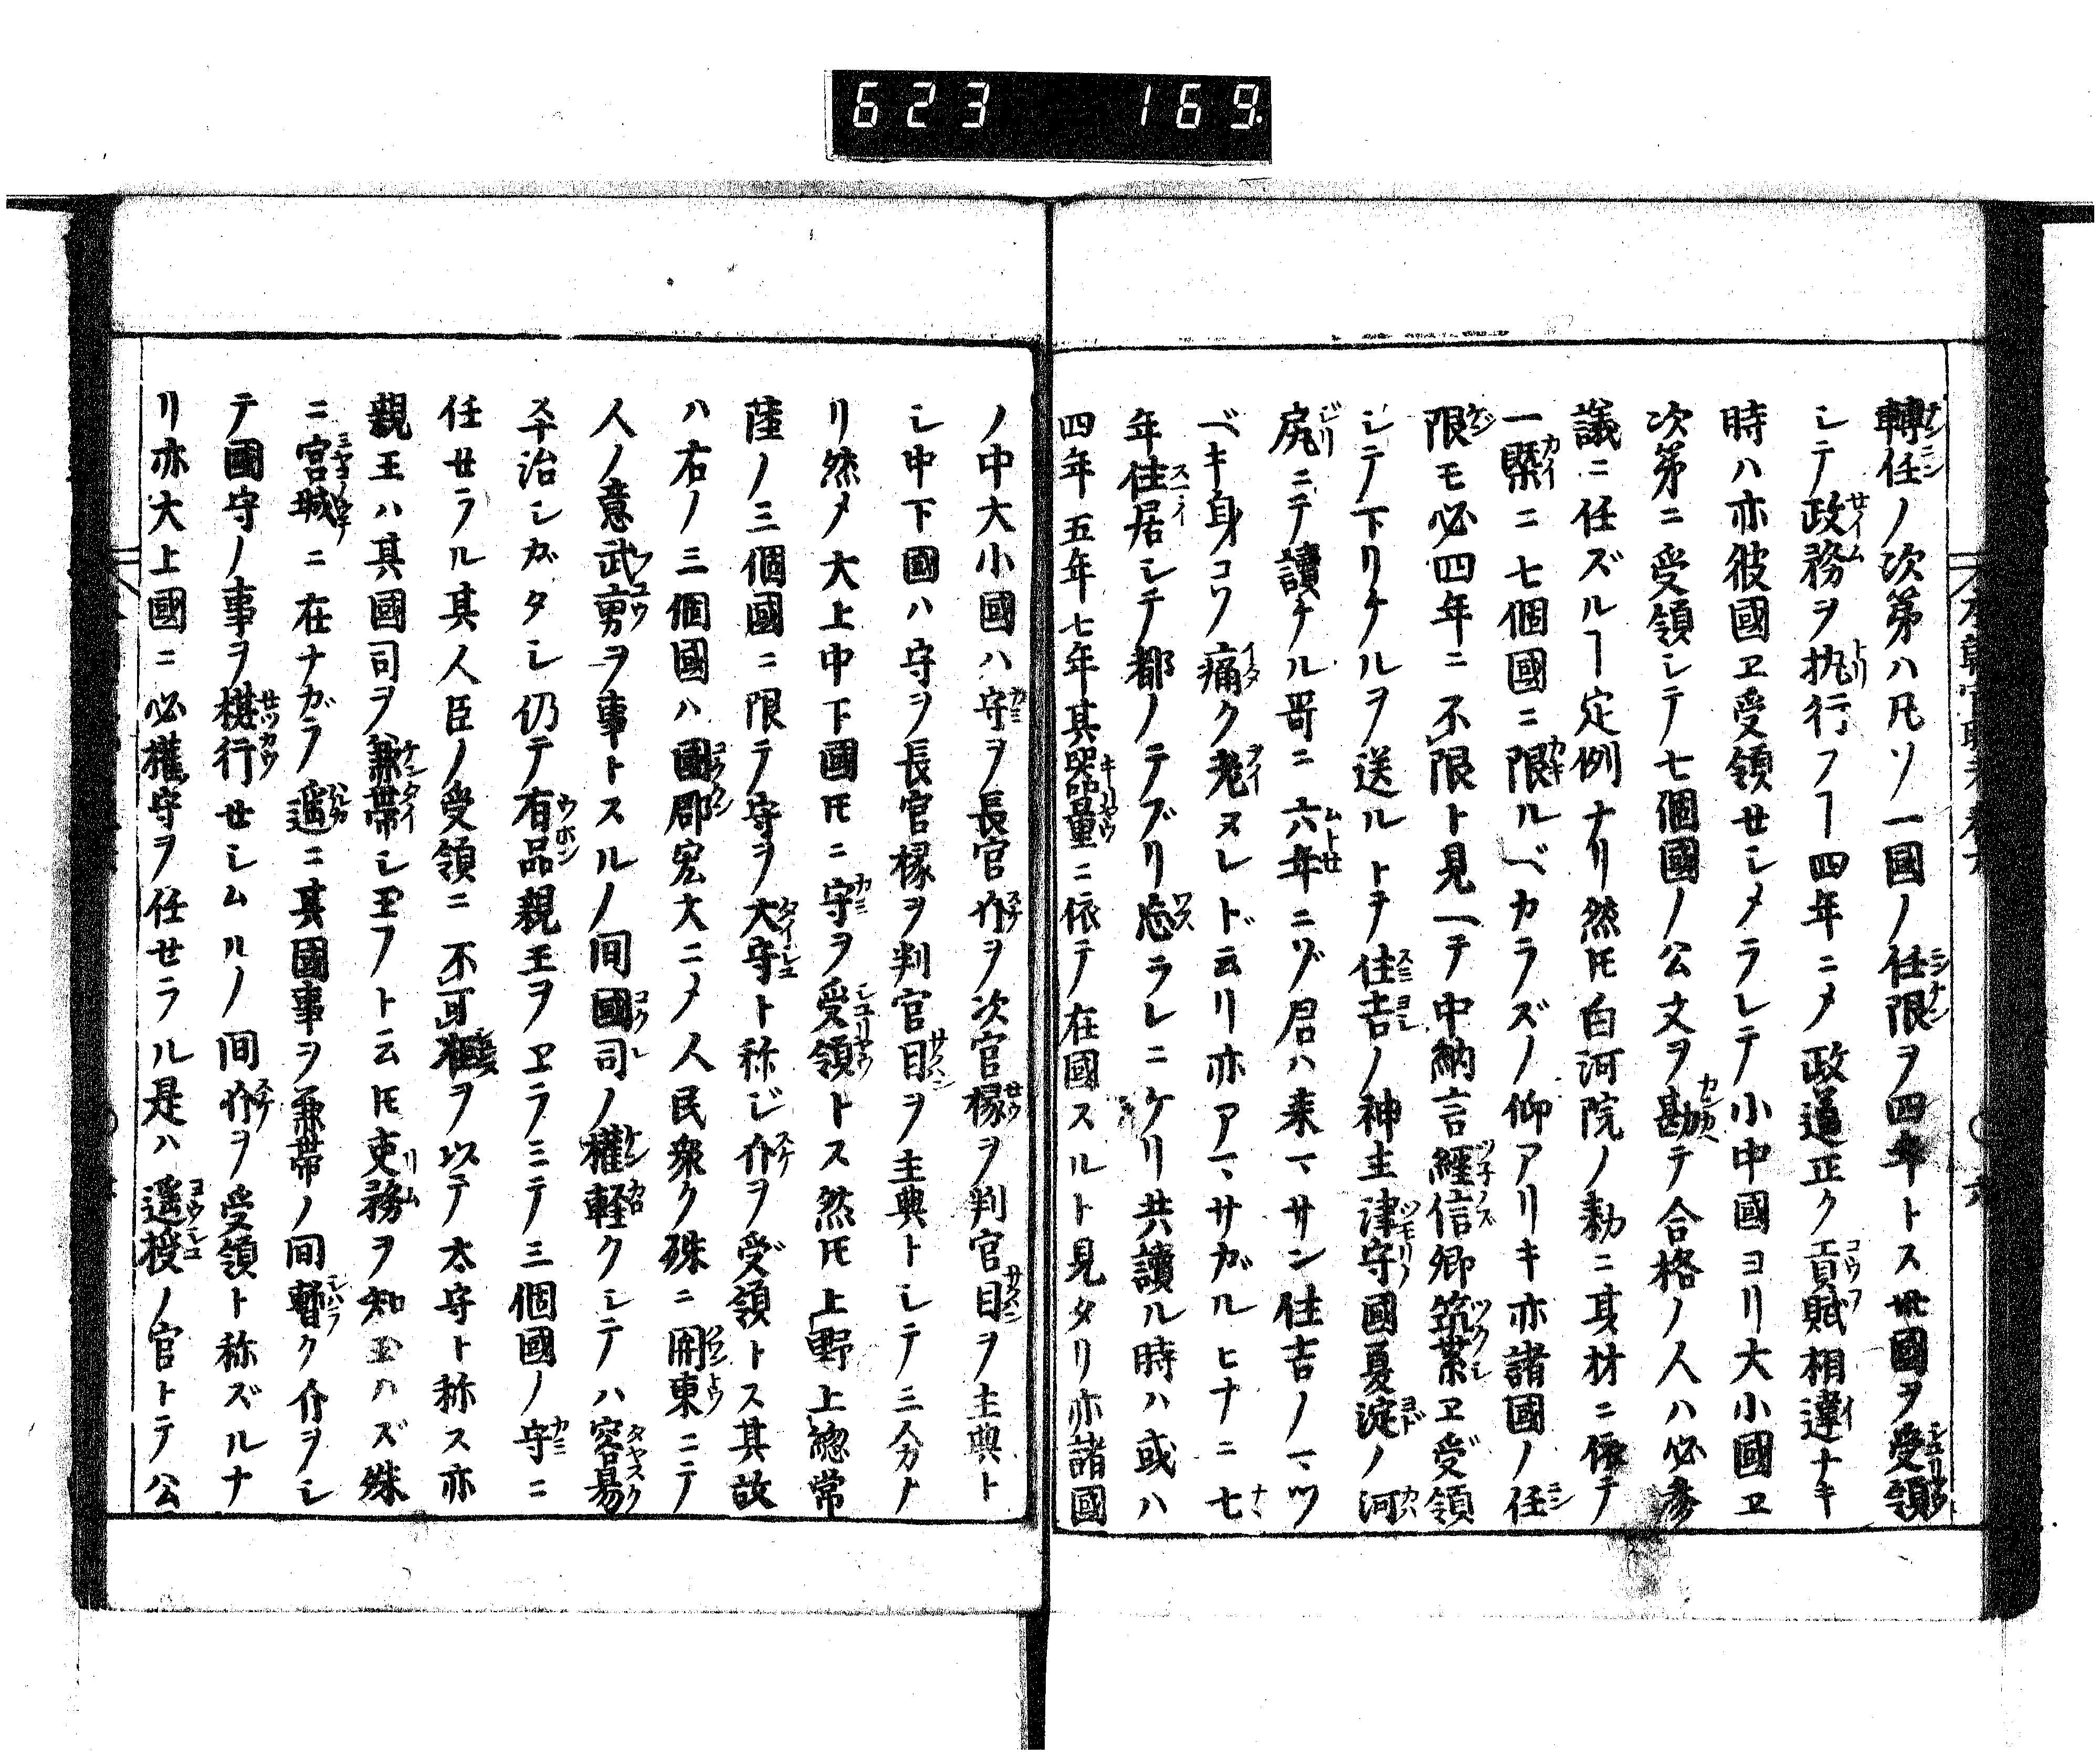 623 169.
轉任ノ次第ハ凡ソ一國ノ任限ヲ四年トス丗國ヲ受領
シテ政務ヲ执行フヿ四年ニメ政道正ク貢賦相違ナキ
時ハ亦彼國ヱ受領セシメラレテ小中國ヨリ大小國ヱ
次第ニ受領シテ七個國ノ公文ヲ勘テ合格ノ人ハ必参
議ニ任ズルヿ定例ナリ然𪜈白河院ノ勅ニ其材ニ依テ
一槩ニ七個國ニ限ルベカラズノ仰アリキ亦諸國ノ任
限モ必四年ニ不限ト見ヘテ中納言經信卿筑紫ヱ受領
シテ下リケルヲ送ルトヲ住吉ノ神主津守國夏淀ノ河
尻ニテ讀ケル哥ニ六年ニゾ君ハ来マサン住吉ノマツ
ベキ身コソ痛ク老ヌレド云リ亦アマサガルヒナニ七
年住居シテ都ノテブリ忘ラレニケリ共讀ル時ハ或ハ
四年五年七年其器量ニ依テ在國スルト見タリ亦諸國
ノ中大小國ハ守ヲ長官介ヲ次官椽ヲ判官目ヲ主典ト
シ中下國ハ守ヲ長官椽ヲ判官目ヲ主典トシテ三分ナ
リ然メ大上中下國𪜈ニ守ヲ受領トス然𪜈上野上總常
陸ノ三個國ニ限テ守ヲ大守ト称ジ介ヲ受領トス其故
ハ右ノ三個國ハ國郡宏大ニメ人民衆ク殊ニ関東ニテ
人ノ意武勇ヲ事トスルノ間國司ノ權軽クシテハ容易
卒治シガタシ仍テ有品親王ヲヱラミテ三個國ノ守ニ
任せラル其人臣ノ受領ニ不可混ヲ以テ太守ト称ス亦
親王ハ其國司ヲ兼帯シ玉フト云𪜈吏務ヲ知玉ハズ殊
ニ宮城ニ在ナガラ遥ニ其國事ヲ兼帯ノ間暫ク介ヲシ
テ國守ノ事ヲ摂行せシムルノ間介ヲ受領ト称ズルナ
リ亦大上國ニ必權守ヲ任せラル是ハ遥授ノ官トテ公